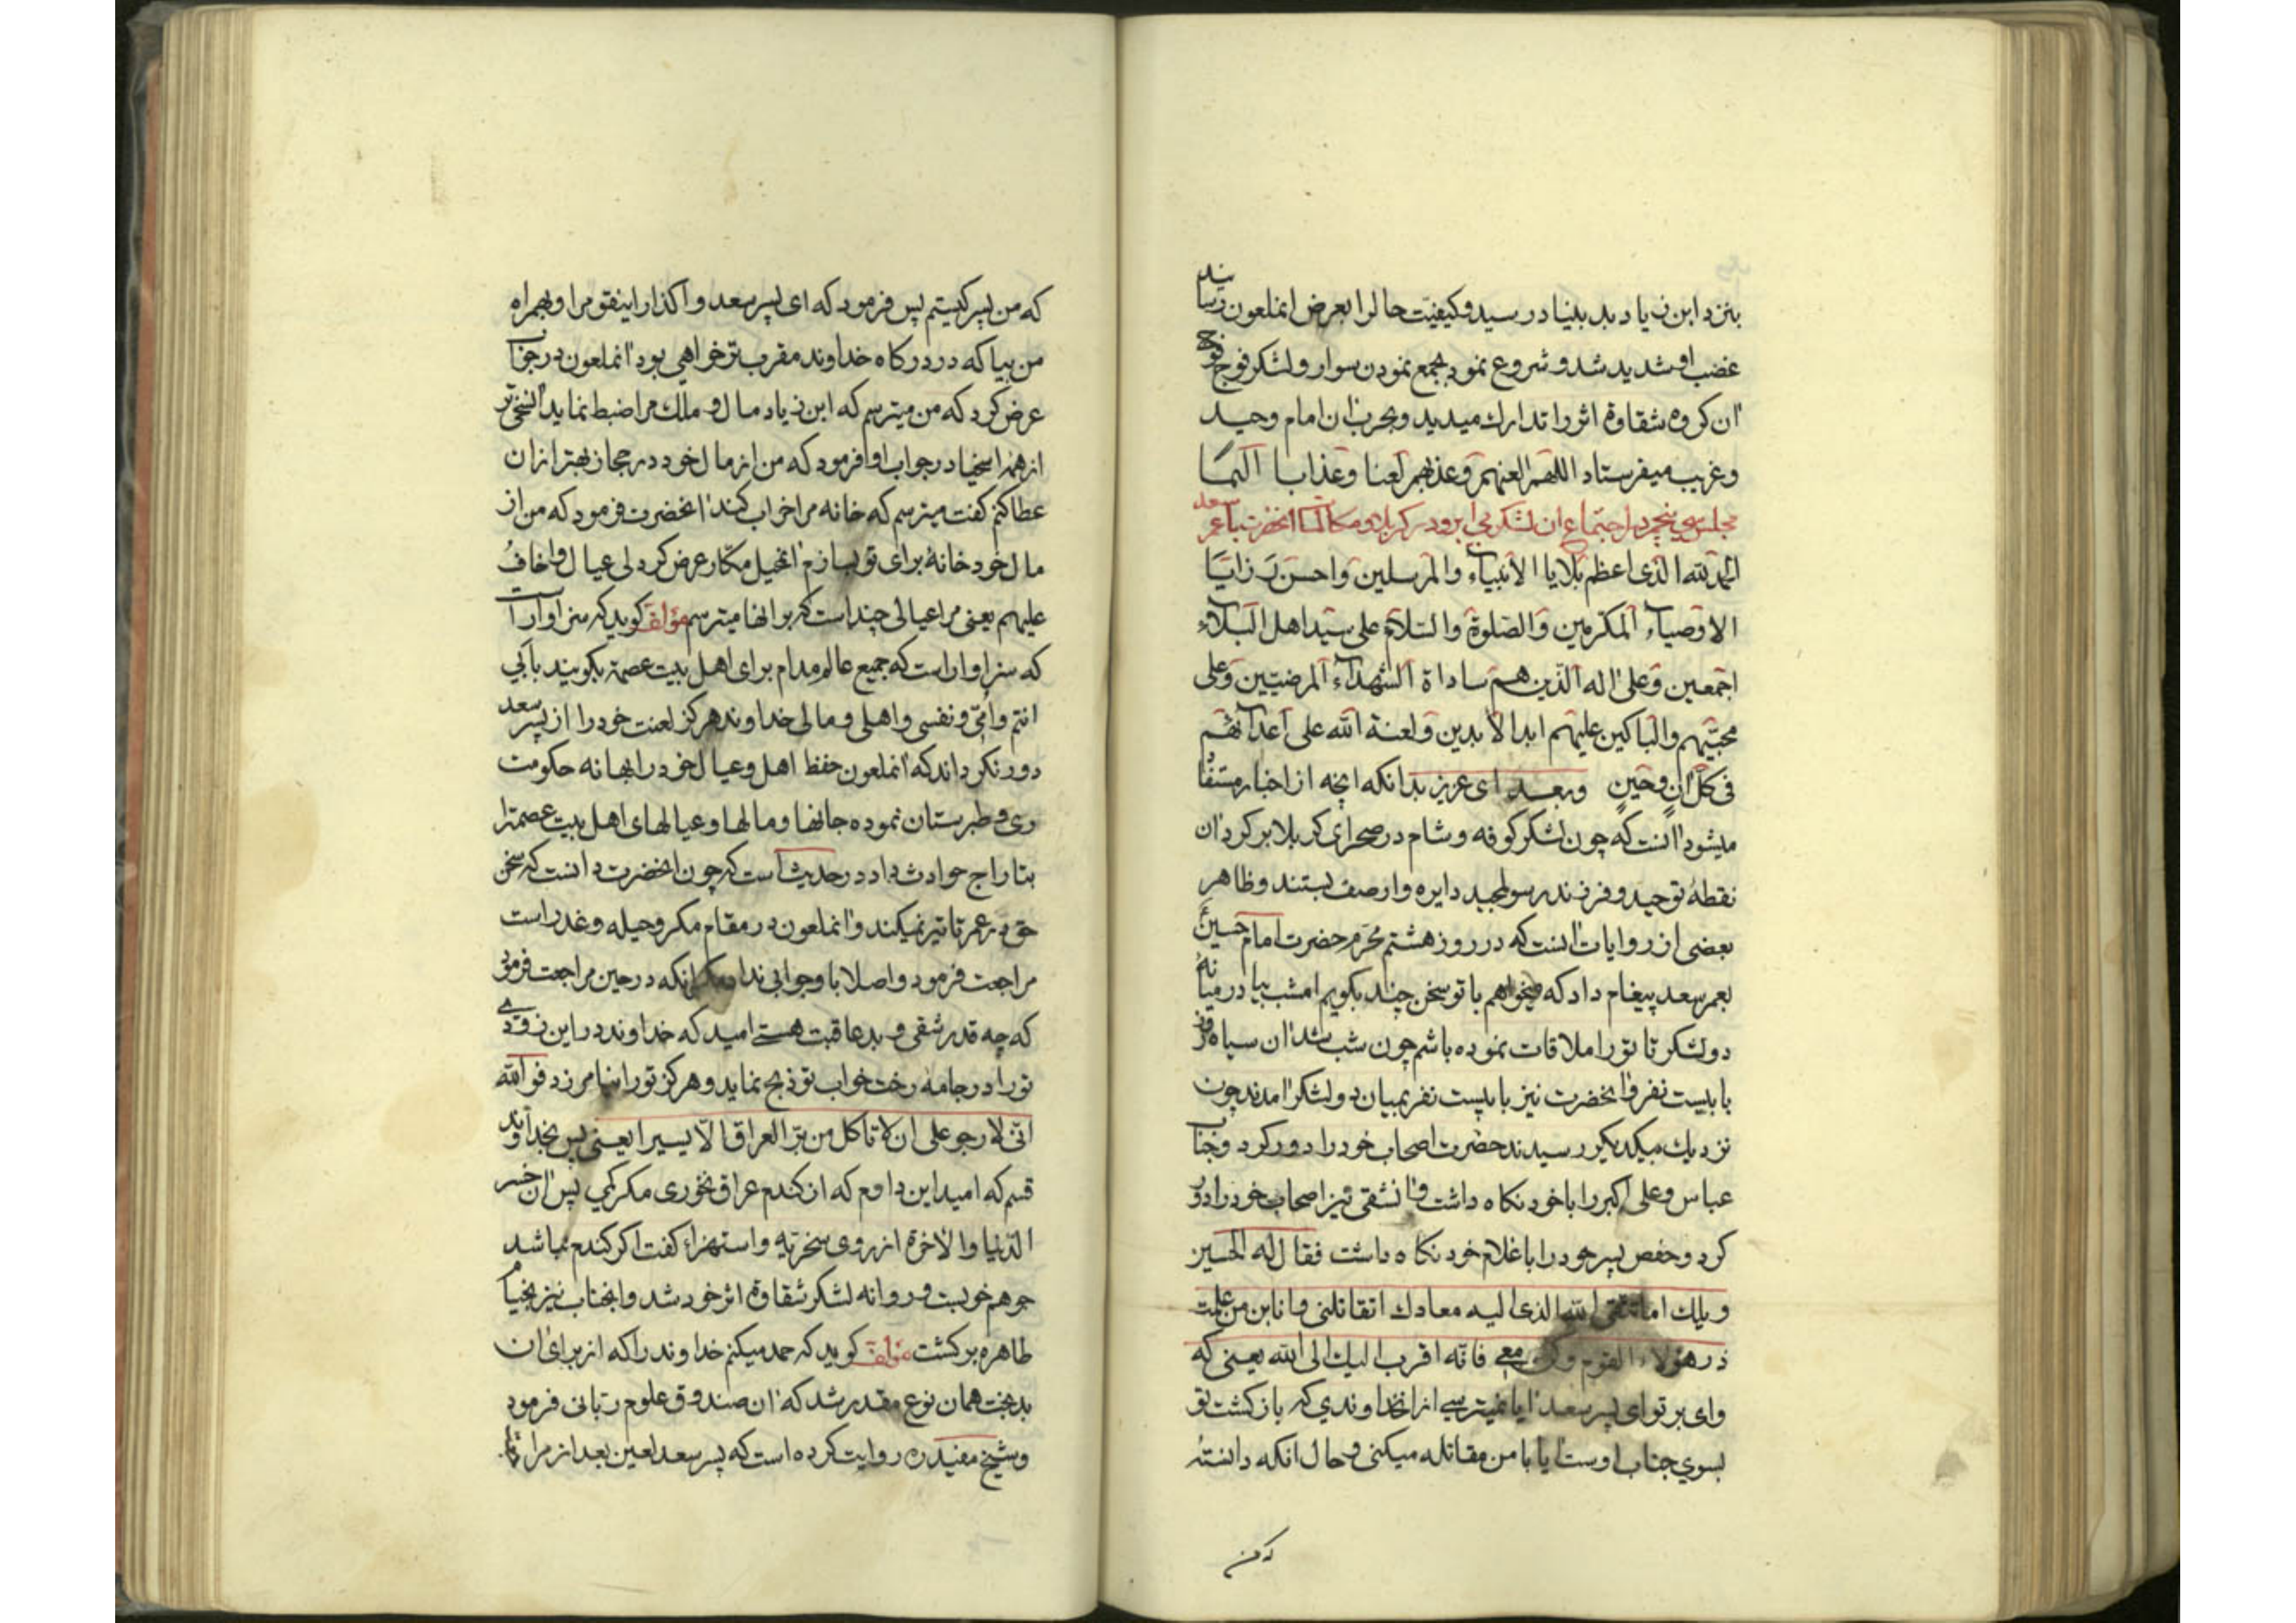 بنزد ابن زیاد بد بنیاد رسید و کیفیّت حالرا بعرض انملعون رسانید
غضب او شدید شد و شروع نمود بجمع نمودن سوار و لشکر فوج فوج
ان کروه شقاوة اثر را تدارك میدید و بحرب ان امام وحید
و غریب میفرستاد اللهمّ العنهم و عذبهم لعنا و عذابا الیمًا
مجلس سی پنجم در اجتماع ان لشکر بی ابرو در کربلا و مکالمات انحضرت با عمر سعد
الحمد لله الذی اعظم بلایا الأنبیاء والمرسلین واحسن رزایا
الاوصیاء المکرّمین والصّلوة والسّلام علی سیّد اهل البلاء
اجمعین وعلی اله الّذین هم ساداة الشّهداء المرضیّین وعلی
محبّیهم والباکین علیهم ابدا الأبدین ولعنة الله علی اعدائهم
فی کلّ ان وحین وبعد ای عزیز بدانکه انچه از اخبار مستفاد
میشود انست که چون لشکر کوفه و شام در صحرای کربلا بر کرد ان
نقطهٔ توحید و فرزند رسول مجید دایره وار صف بستند و ظاهر
بعضی از روایات انست که در روز هشتم محرّم حضرت امام حسین
بعمر سعد پیغام داد که میخواهم با تو سخن چند بکویم امشب بیا در میانهٔ
دو لشکر تا تو را ملاقات نموده باشم چون شب شد ان سیاه روز
با بیست نفر و انحضرت نیز با بیست نفر بمیان دو لشکر امدند چون
نزدیك بیکدیکر رسیدند حضرت اصحاب خود را دور کرد و جناب
عباس و علی اکبر را با خود نکاه داشت و انشقی نیز اصحاب خود را دور
کرد و حفص پسر خود را با غلام خود نکاه داشت فقال له الحسین
ویلك اما تتقی الله الذی الیه معادك اتقاتلنی وانا بن من علمت
ذر هؤلاء القوم وکن معی فانّه اقرب الیك الی الله یعنی که
وای بر تو ای پسر سعد ایا نمیترسی از انخداوندی که بازکشت تو
بسوی جناب اوست ایا با من مقاتله میکنی و حال انکه دانستهٔ
که من
که من پسر کیستم پس فرمود که ای پسر سعد واکذار اینقوم را و بهمراه
من بیا که در درکاه خداوند مقرب تر خواهی بود انملعون در جواب
عرض کرد که من میترسم که ابن زیاد مال و ملك مرا ضبط نماید السخی تر
از همه اسخیا در جواب او فرمود که من از مال خود در حجاز بهتر از ان
عطا کنم کفت میترسم که خانه مرا خراب کند انحضرت فرمود که من از
مال خود خانهٔ برای تو بسازم انحیل مکّار عرض کرد لی عیال و اخاف
علیهم یعنی مرا عیالی چند است که بر انها میترسم مؤلف کوید که سزاوار است
که سزاوار است که جمیع عالم مدام برای اهل بیت عصمة بکویند بابی
انتم وامّی ونفسی واهلی ومالی خداوند هرکز لعنت خود را از پسر سعد
دور نکرداند که انملعون حفظ اهل و عیال خود را بهانه حکومت
ری و طبرستان نموده جانها و مالها و عیالهای اهل بیت عصمة را
بتاراج حوادث داد در حدیث است که چون انحضرت دانست که سخن
حق در عمر تاثیر نمیکند و انملعون در مقام مکر و حیله و غدر است
مراجعت فرمود و اصلا با و جوابی نداد مکر انکه در حین مراجعت فرمود
که چه قدر شقی و بد عاقبت هستی امید که خداوند در این زودی
تو را در جامهٔ رخت خواب تو ذبح نماید و هرکز تو را نیامرزد فو الله
انّی لارجو علی ان لا تاکل من برّ العراق الّا یسیرا یعنی پس بخداوند
قسم که امید این دارم که از کندم عراق نخوری مکر کمی پس ان خسر
الدّنیا والاخرة از روی سخریّه و استهزاء کفت اکر کندم نباشد
جو هم خوبست و روانه لشکر شقاوة اثر خود شد و انجناب نیز بخیام
طاهره برکشت مؤلف کوید که حمد میکنم خداوند را که از برای ان
بدبخت همان نوع مقدر شد که ان صندوق علوم ربّانی فرمود
و شیخ مفید ره روایت کرده است که پسر سعد لعین بعد از مراقا